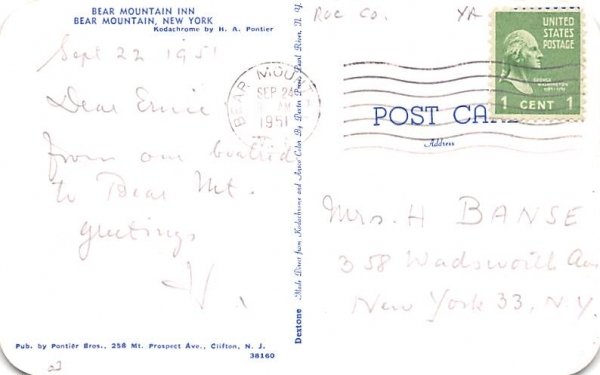 BEAR MOUNTAIN INN
BEAR MOUNTAIN, NEW YORK
Kodachrome by H. A. Pontier
Sept 22 1951
Dear Ernie
from our boatride
to Bear Mt.
greetings
H.
Pub. by Pontier Bros., 258 Mt. Prospect Ave., Clifton, N. J.
38160
Dextone Made Direct from Kodachrome and Ansco Color By Dexter Press, Pearl River, N. Y.
BEAR MOUNT
SEP 24
AM
1951
UNITED
STATES
POSTAGE
GEORGE
WASHINGTON
1 CENT 1
POST CARD
Address
Mrs. H BANSE
358 Wadsworth Ave
New York 33, N.Y.